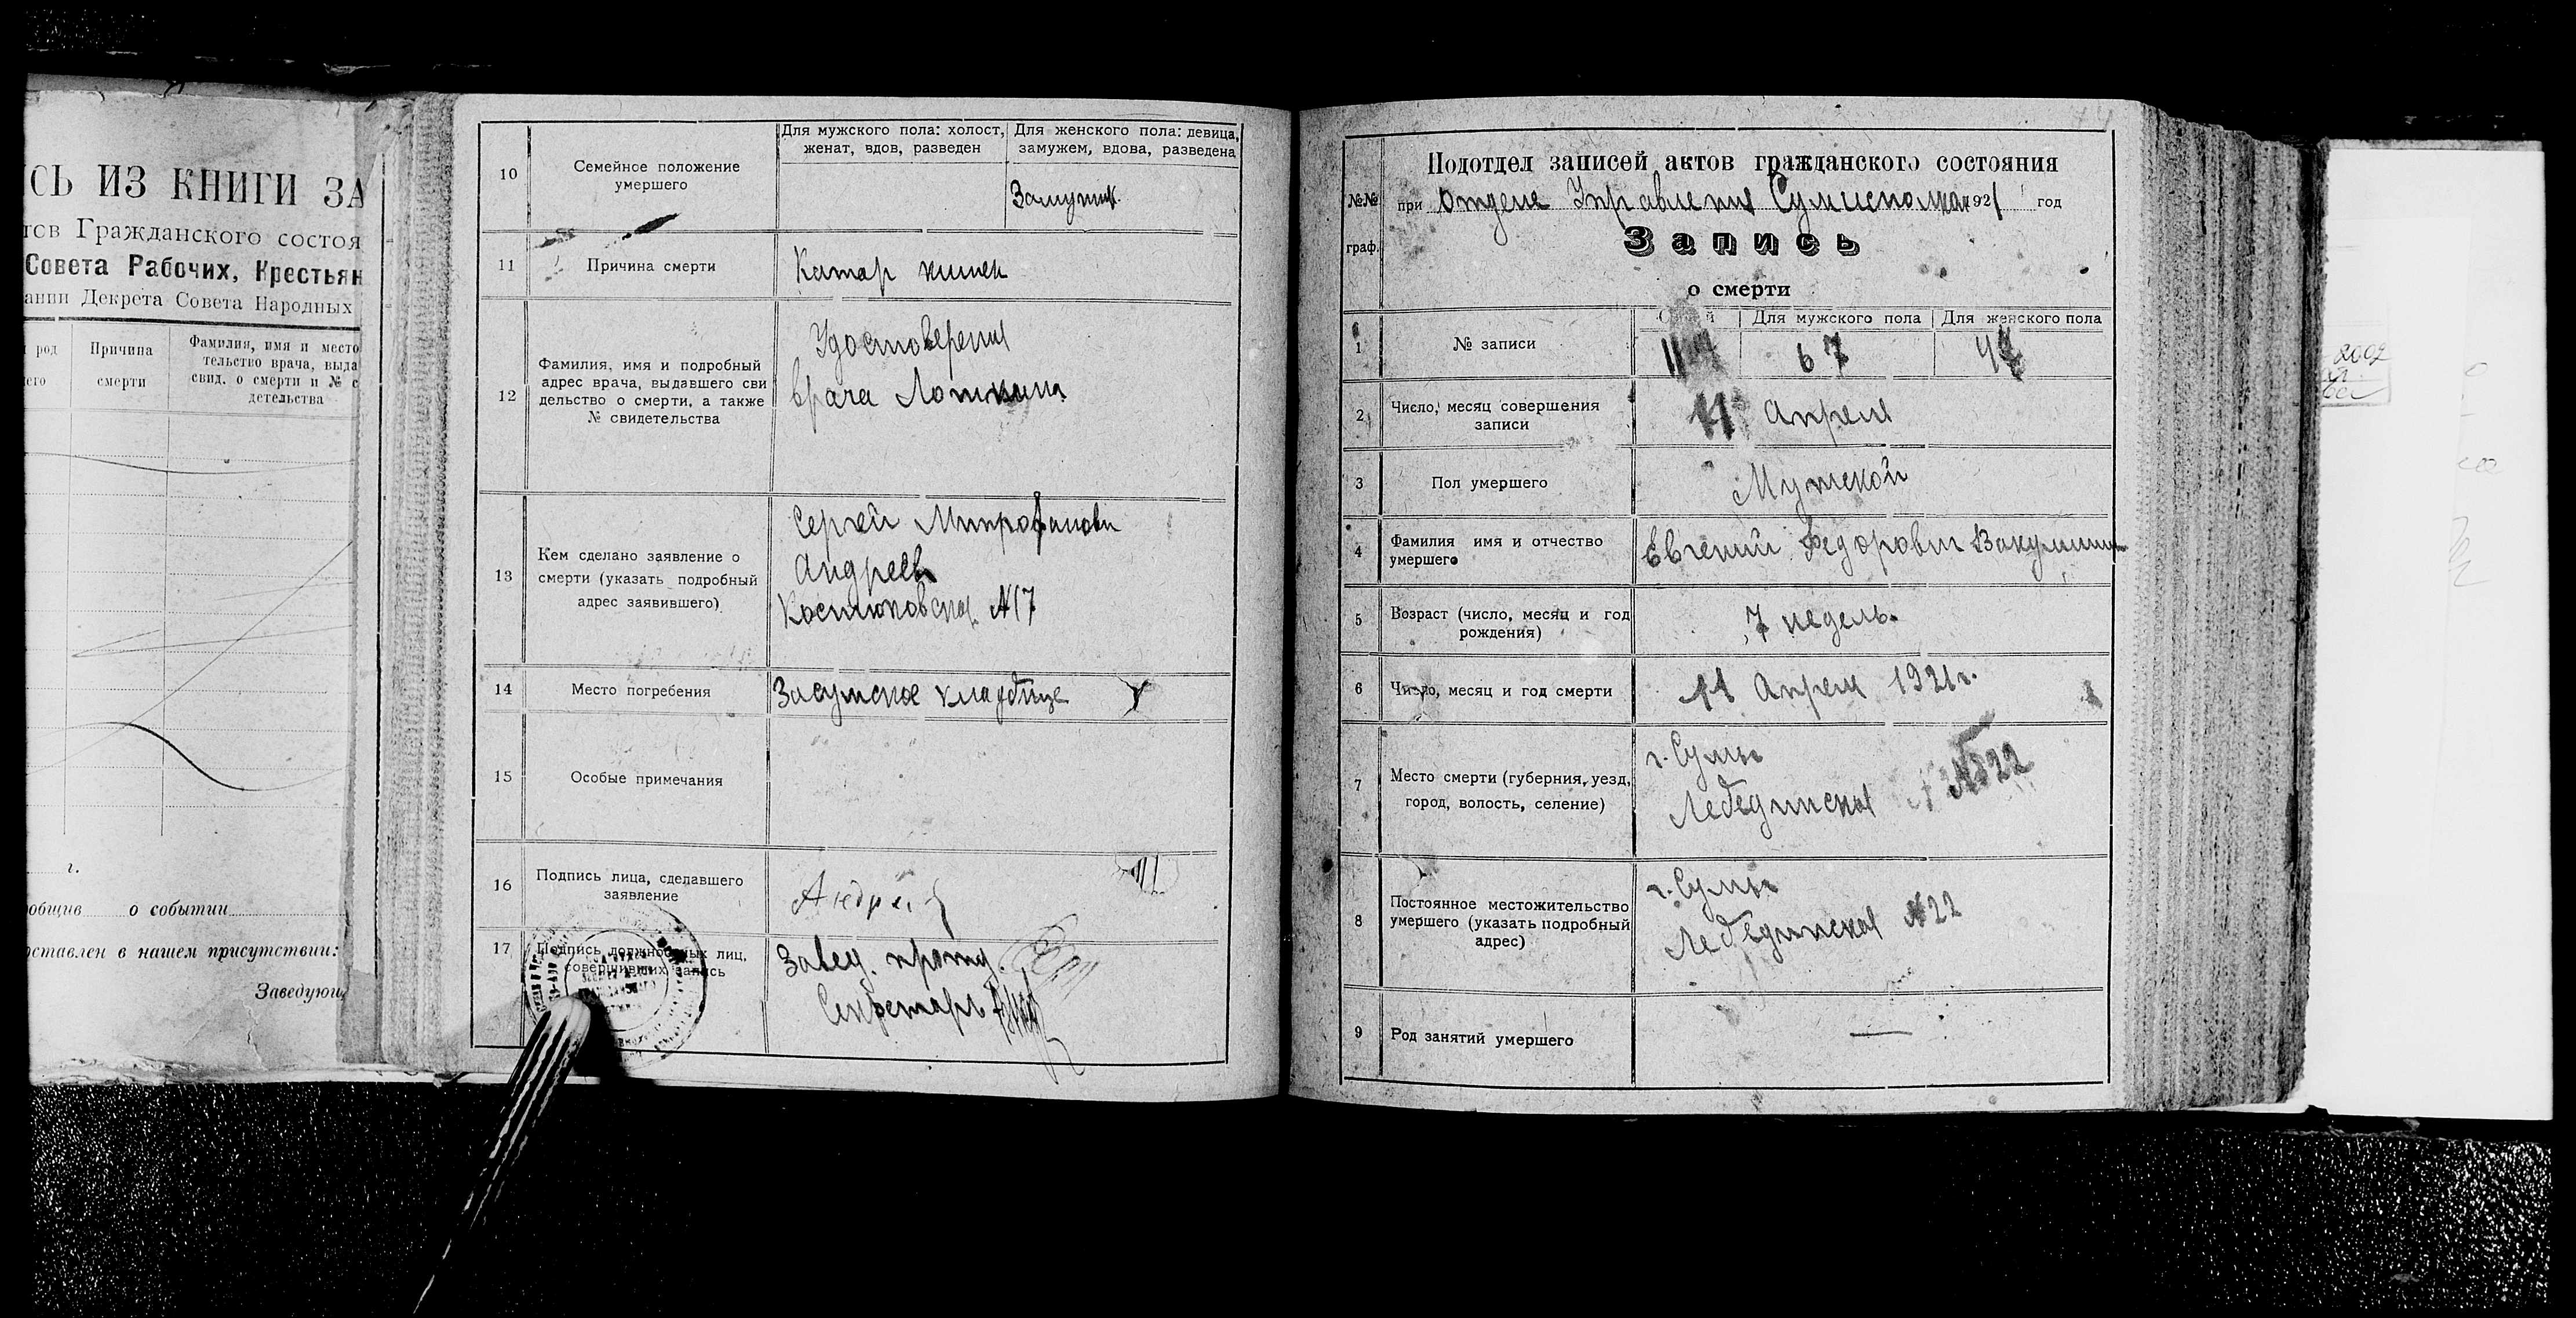 СЬ ИЗ КНИГИ ЗА
тов Гражданского состоя
Совета Рабочих, Крестьян
ании Декрета Совета Народных
род
его
Причина
смерти
Фамилия, имя и место
тельство врача, выда
свид. о смерти и № с
детельства
г.
общив о событии
оставлен в нашем присутствии:
Заведующ
10
Семейное положение
умершего
Для мужского пола: холост,
женат, вдов, разведен
Для женского пола: девица,
замужем, вдова, разведена
Замужн.
11
Причина смерти
Катар кишек
12
Фамилия, имя и подробный
адрес врача, выдавшего сви
дельство о смерти, а также
№ свидетельства
Удостоверения
врача
13
Кем сделано заявление о
смерти (указать подробный
адрес заявившего)
Сергей Митрофанови
Андреев
Костюковская №17
14
Место погребения
Засумское кладбище
15
Особые примечания
16
Подпись лица, сделавшего
заявление
Андреев
17
Подпись должностных лиц,
совершивших запись
Завед.
Секретарь
№№
граф.
Подотдел записей актов гражданского состояния
при отделе Управления Сумисполкома 1921 год
Запись
о смерти
1
№ записи
Для мужского пола
Для женского пола
67
2
Число, месяц совершения
записи
11 Апреля
3
Пол умершего
Мужской
4
Фамилия имя и отчество
умершего
Евгений Федорович
5
Возраст (число, месяц и год
рождения)
7 недель.
6
Число, месяц и год смерти
11 Апреля 1921 г.
7
Место смерти (губерния, уезд,
город, волость, селение)
г. Сумы
Лебединская №22
8
Постоянное местожительство
умершего (указать подробный
адрес)
г. Сумы
Лебединская №22
9
Род занятий умершего
—
2002